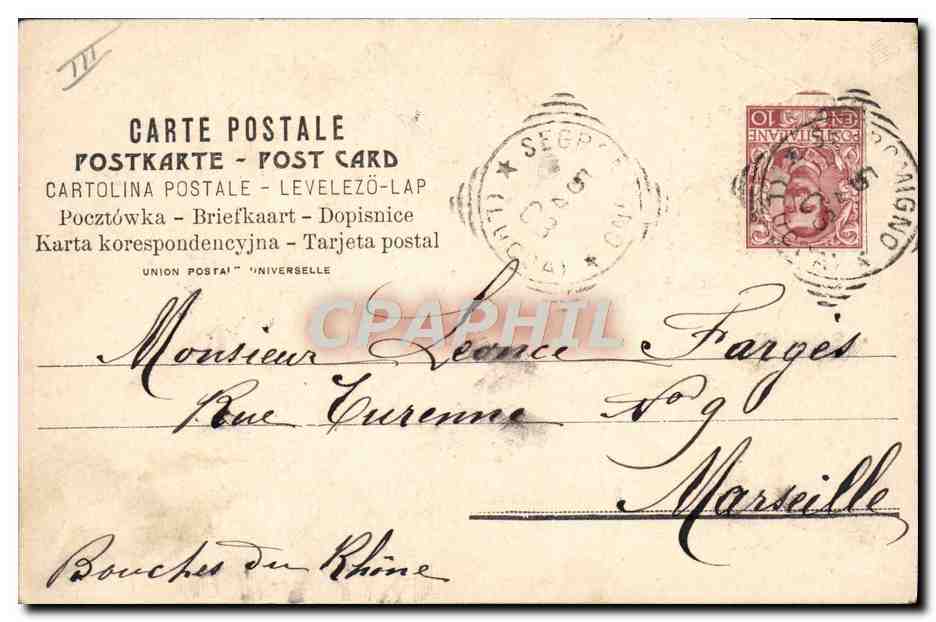 III
CARTE POSTALE
POSTKARTE - POST CARD
CARTOLINA POSTALE - LEVELEZŐ-LAP
Pocztówka - Briefkaart - Dopisnice
Karta korespondencyjna - Tarjeta postal
UNION POSTALE UNIVERSELLE
SEGROMIGNO
5
03
CEN. 10
POSTE ITALIANE
SEGROMIGNO
CPAPHIL
Monsieur Léonce Fargès
Rue Turenne No 9
Marseille
Bouches du Rhône